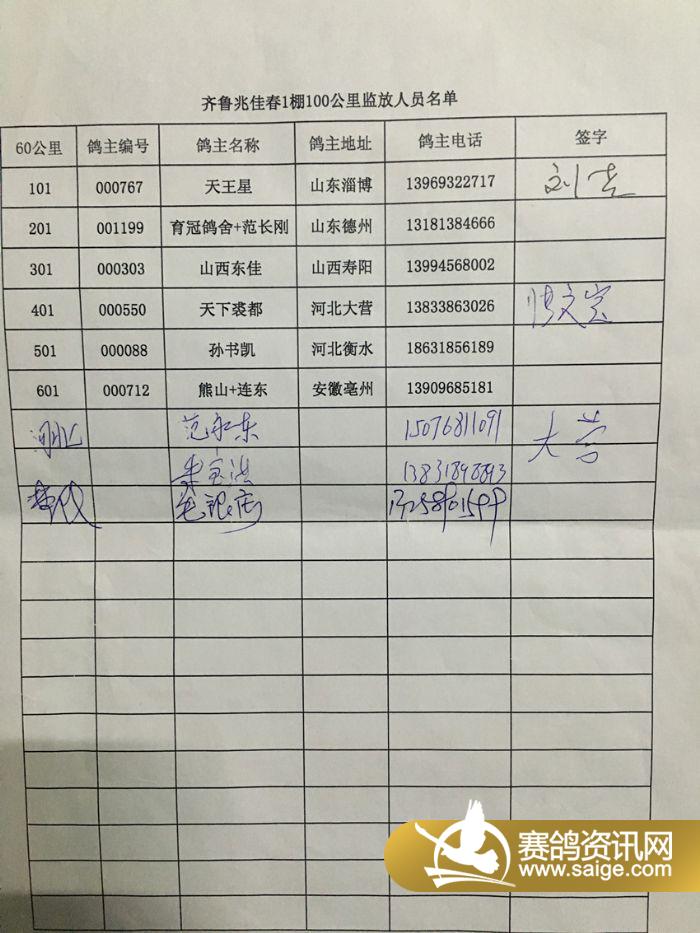 齐鲁兆佳春1棚100公里监放人员名单
60公里 鸽主编号 鸽主名称 鸽主地址 鸽主电话 签字
101 000767 天王星 山东淄博 13969322717 刘吉
201 001199 育冠鸽舍+范长刚 山东德州 13181384666
301 000303 山西东佳 山西寿阳 13994568002
401 000550 天下裘都 河北大营 13833863026
501 000088 孙书凯 河北衡水 18631856189
601 000712 熊山+连东 安徽亳州 13909685181
河北 范永东 15076811091 大营
朱宝洪 13831898893
赛鸽资讯网
www.saige.com